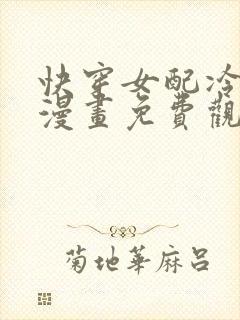 快穿女配冷
漫畫免費觀
菊地華麻呂